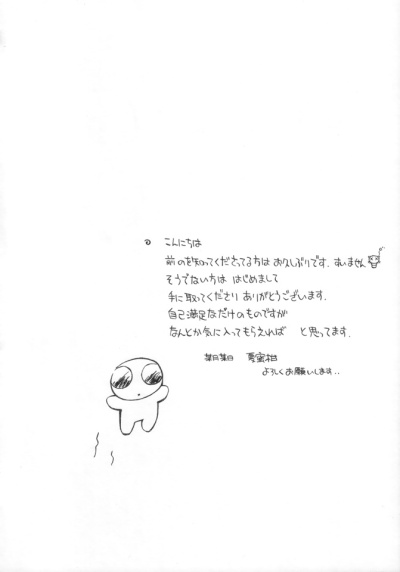 こんにちは
前のを知ってくださってる方は お久しぶりです. すいません
そうでない方は はじめまして
手に取ってくださり ありがとうございます.
自己満足なだけのものですが
なんとか気に入ってもらえれば と思ってます.
某月某日 夢蜜柑
よろしくお願いします..